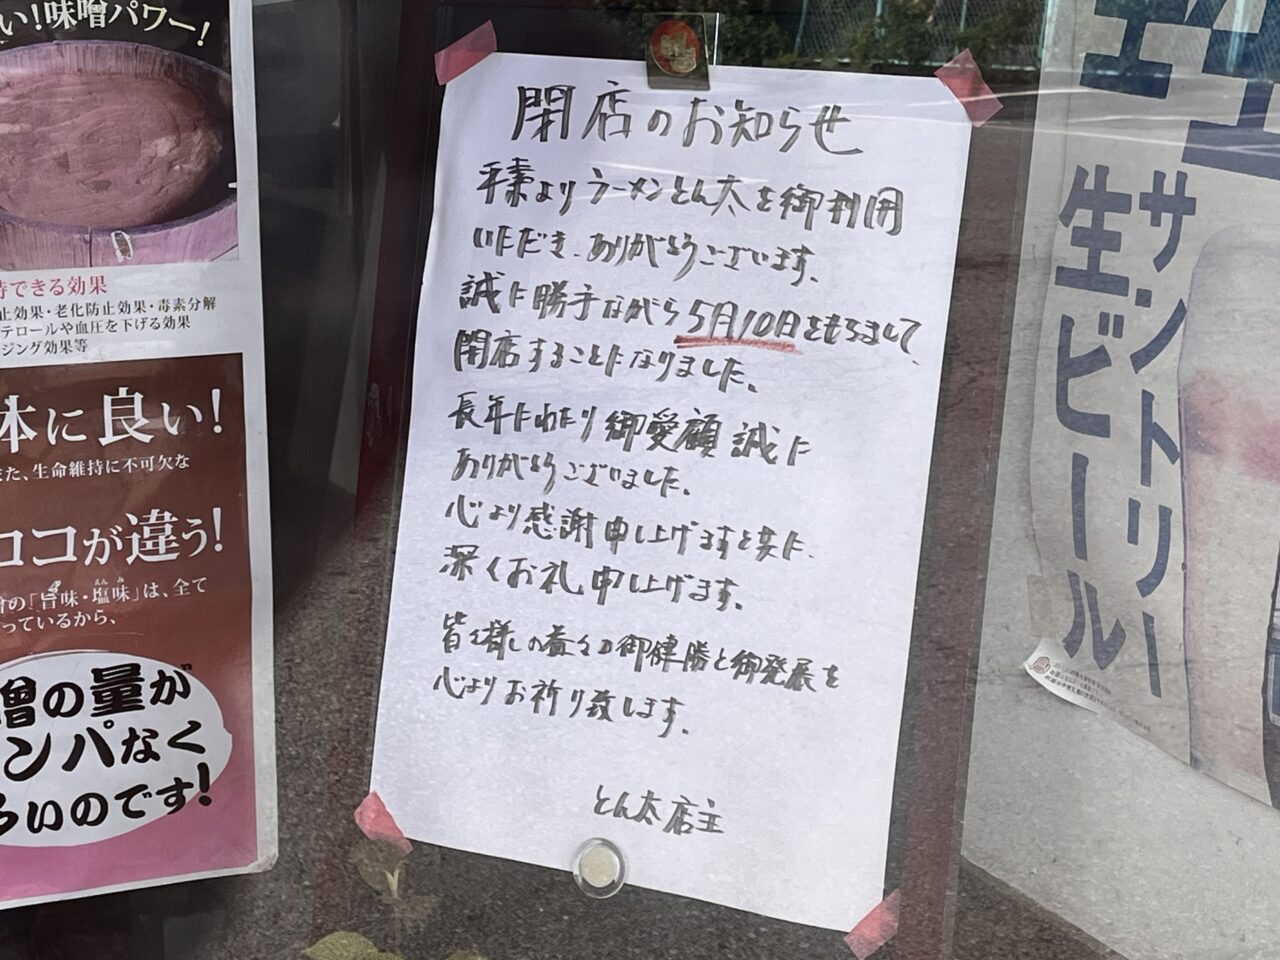 い！味噌パワー！
待できる効果
止効果・老化防止効果・毒素分解
テロールや血圧を下げる効果
ジング効果等
体に良い！
また、生命維持に不可欠な
ココが違う！
噌の「旨味・塩味」は、全て
っているから、
噌の量が
ンパなく
多いのです！
閉店のお知らせ
平素よりラーメンとん太を御利用
いただき、ありがとうございます。
誠に勝手ながら5月10日をもちまして、
閉店することになりました。
長年にわたり御愛顧誠に
ありがとうございました。
心より感謝申し上げますと共に、
深くお礼申し上げます。
皆々様の益々の御健勝と御発展を
心よりお祈り致します。
とん太店主
サントリー
生ビール